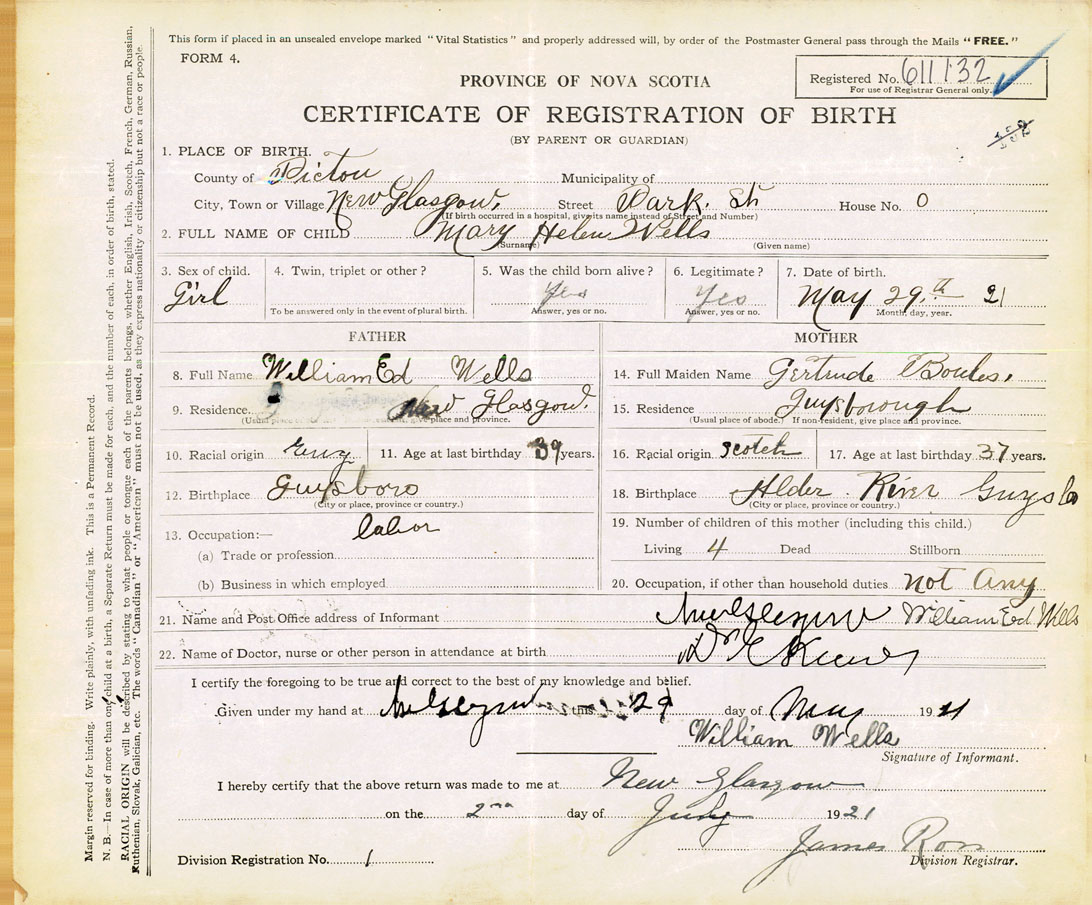 This form if placed in an unsealed envelope marked "Vital Statistics" and properly addressed will, by order of the Postmaster General pass through the Mails "FREE."
FORM 4.
PROVINCE OF NOVA SCOTIA
Registered No. 611132
For use of Registrar General only.
CERTIFICATE OF REGISTRATION OF BIRTH
(BY PARENT OR GUARDIAN)
1. PLACE OF BIRTH.
County of Pictou Municipality of
City, Town or Village New Glasgow. Street Park. St House No. 0
(If birth occurred in a hospital, give its name instead of Street and Number)
2. FULL NAME OF CHILD Mary Helen Wells
(Surname) (Given name)
3. Sex of child. 4. Twin, triplet or other? 5. Was the child born alive? 6. Legitimate? 7. Date of birth.
Girl Yes Yes May 29.th 21
To be answered only in the event of plural birth. Answer, yes or no. Answer, yes or no. Month, day, year.
FATHER
8. Full Name William Ed Wells
9. Residence New Glasgow.
(Usual place give place and province.
10. Racial origin Eng 11. Age at last birthday 39 years.
12. Birthplace Guysboro
(City or place, province or country.)
13. Occupation:— labor
(a) Trade or profession
(b) Business in which employed
MOTHER
14. Full Maiden Name Gertrude
15. Residence Guysborough
(Usual place of abode.) If non-resident, give place and province.
16. Racial origin Scotch 17. Age at last birthday 37 years.
18. Birthplace Alder River Guysbo
(City or place, province or country.)
19. Number of children of this mother (including this child.)
Living 4 Dead Stillborn
20. Occupation, if other than household duties not Any
21. Name and Post Office address of Informant New Glasgow William Ed Wells
22. Name of Doctor, nurse or other person in attendance at birth Dr
I certify the foregoing to be true and correct to the best of my knowledge and belief.
Given under my hand at New Glasgow this 29 day of May 19 21
William Wells
Signature of Informant.
I hereby certify that the above return was made to me at New Glasgow
on the 2nd day of July 1921
James Ross
Division Registration No. 1 Division Registrar.
Margin reserved for binding. Write plainly, with unfading ink. This is a Permanent Record.
N. B.—In case of more than one child at a birth, a Separate Return must be made for each, and the number of each, in order of birth, stated.
RACIAL ORIGIN will be described by stating to what people or tongue each of the parents belongs, whether English, Irish, Scotch, French, German, Russian,
Ruthenian, Slovak, Galician, etc. The words "Canadian" or "American" must not be used, as they express nationality or citizenship but not a race or people.